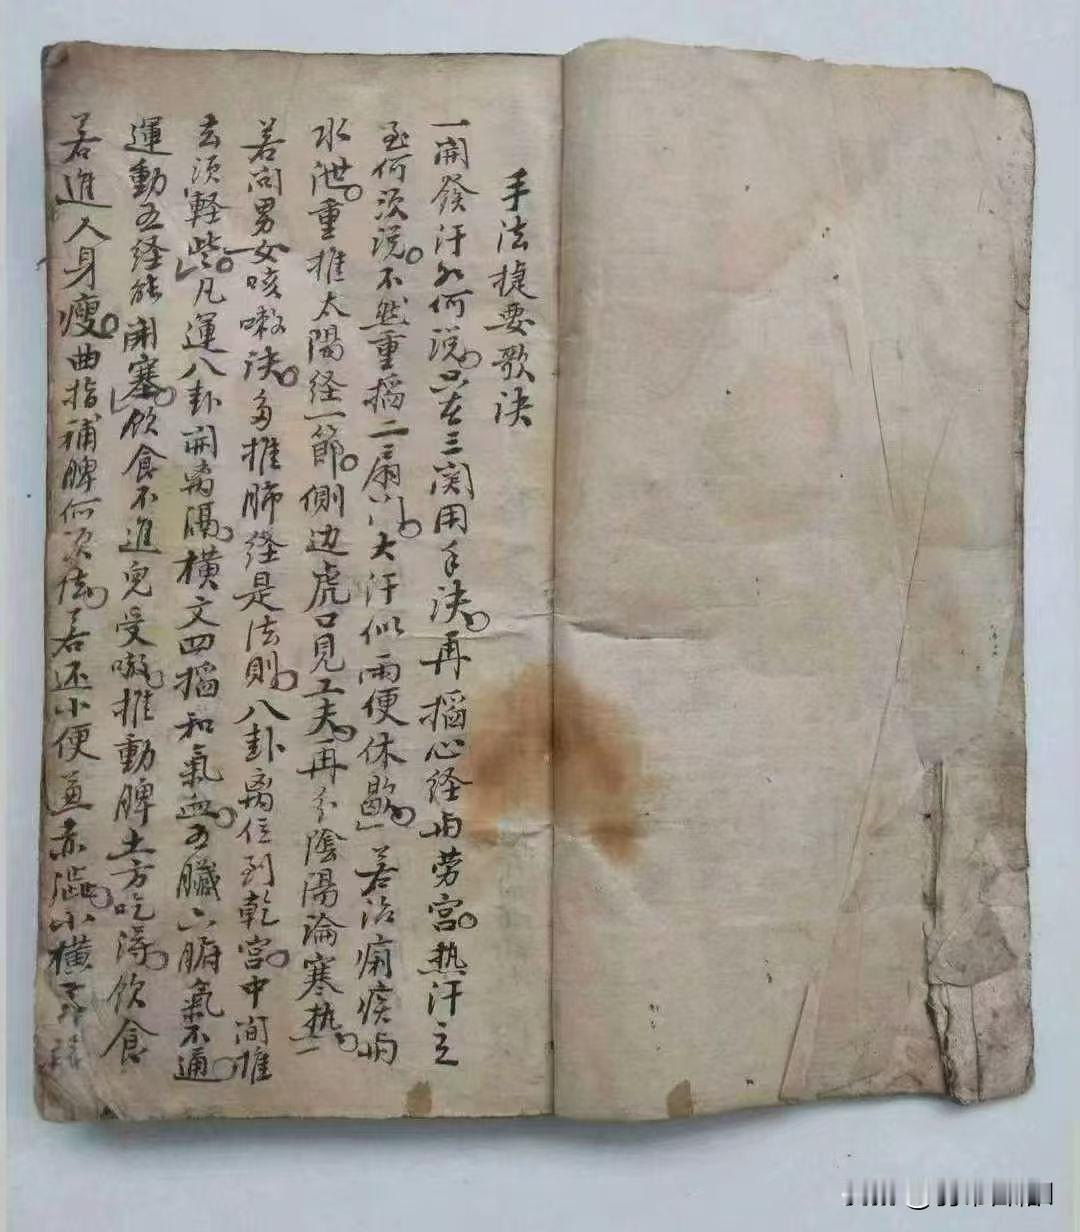 手法捷要歌决
一開發汗如何说只在三関用手决再掐心经与劳宫热汗立
至何须说不然重掐二扇门大汗似雨便休歇若治痢疾与
水泄重推太陽经一節側边虎口見工夫再分陰陽論寒热
若问男女咳嗽诀多推肺经是法則八卦离位到乾宫中间推
去须輕些凡運八卦開离隔横文四掐和氣血五臟六腑氣不通
運動五经能開塞飲食不進兒受嗽推動脾土方吃得飲食
若進人身瘦曲指補脾何须法若还小便兼赤澁小横